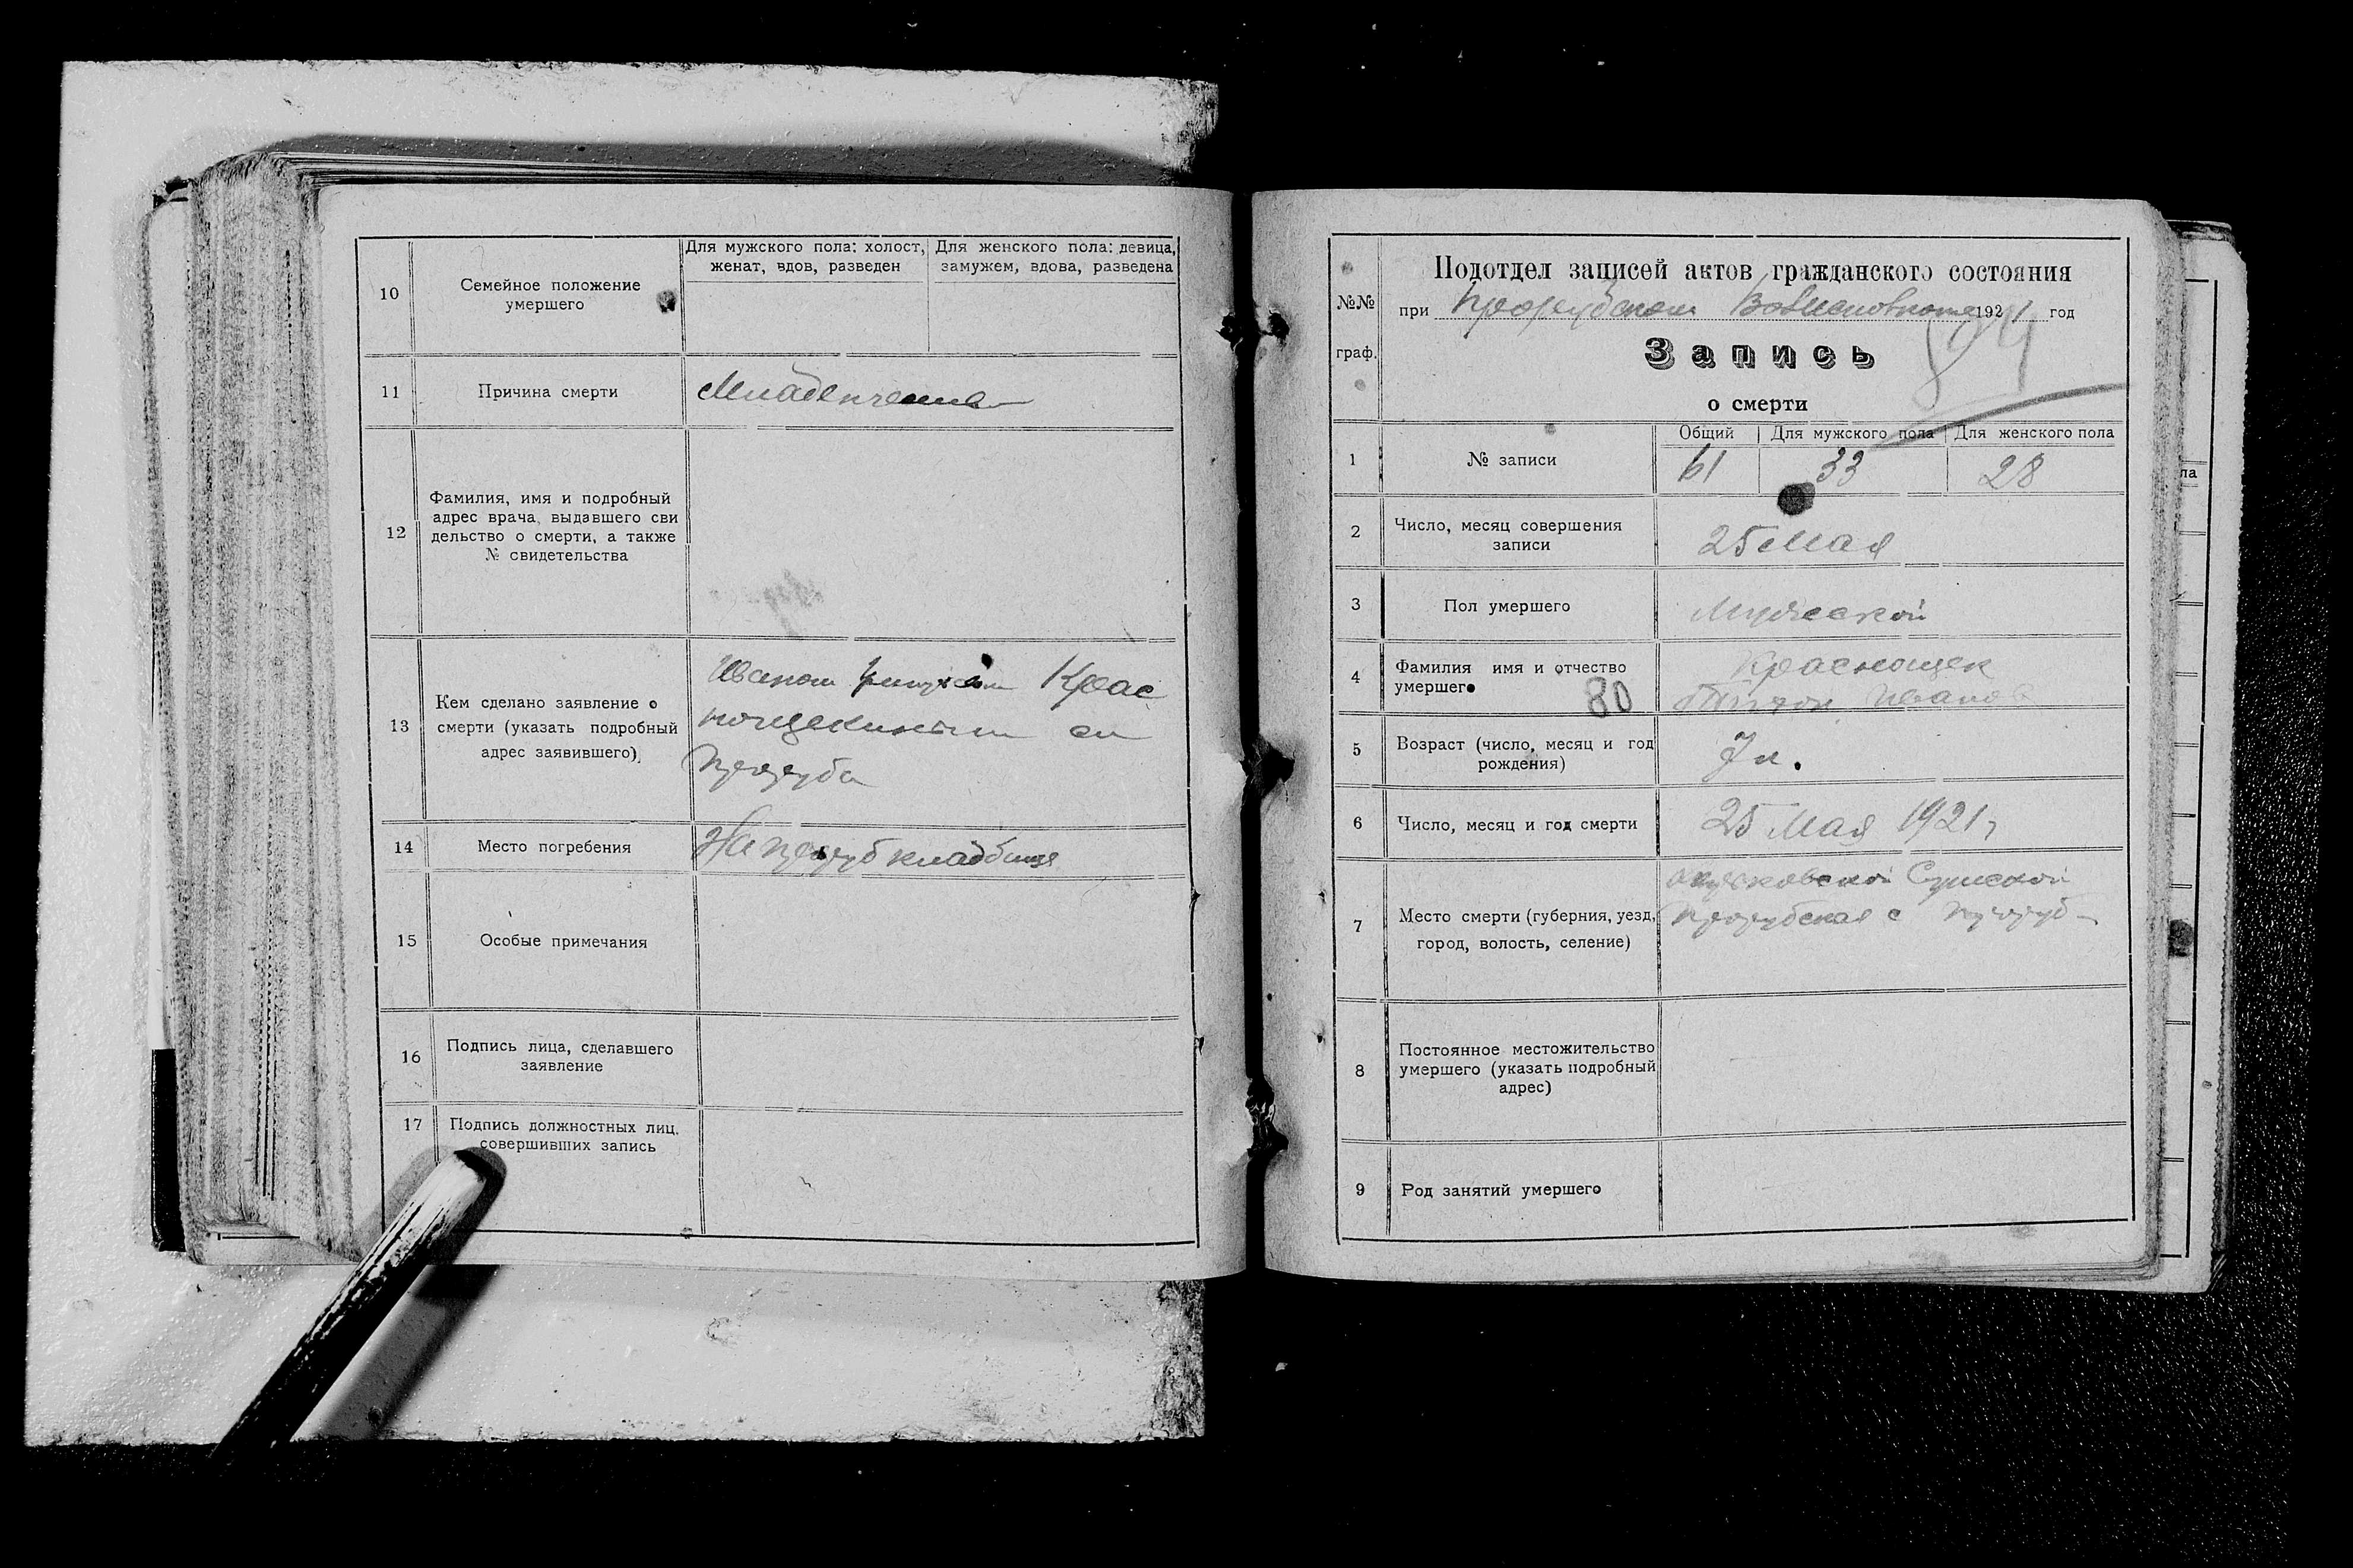 10
Семейное положение
умершего
Для мужского пола: холост,
женат, вдов, разведен
Для женского пола: девица,
замужем, вдова, разведена
11
Причина смерти
Младенческая
12
Фамилия, имя и подробный
адрес врача, выдавшего сви
дельство о смерти, а также
№ свидетельства
13
Кем сделано заявление о
смерти (указать подробный
адрес заявившего)
Иваном Крас
нощекиным
14
Место погребения
кладбище
15
Особые примечания
16
Подпись лица, сделавшего
заявление
17
Подпись должностных лиц,
совершивших запись
№№
граф.
Подотдел записей актов гражданского состояния
при Прорубском 1921 год
Запись
о смерти
1
№ записи
Общий
Для мужского пола
Для женского пола
61
33
28
2
Число, месяц совершения
записи
25 Мая
3
Пол умершего
Мужеской
4
Фамилия имя и отчество
умершего
80
Краснощек
Иванов
5
Возраст (число, месяц и год
рождения)
6
Число, месяц и год смерти
25 Мая 1921 г
7
Место смерти (губерния, уезд,
город, волость, селение)
Сумской
Прорубская с
8
Постоянное местожительство
умершего (указать подробный
адрес)
9
Род занятий умершего
ла